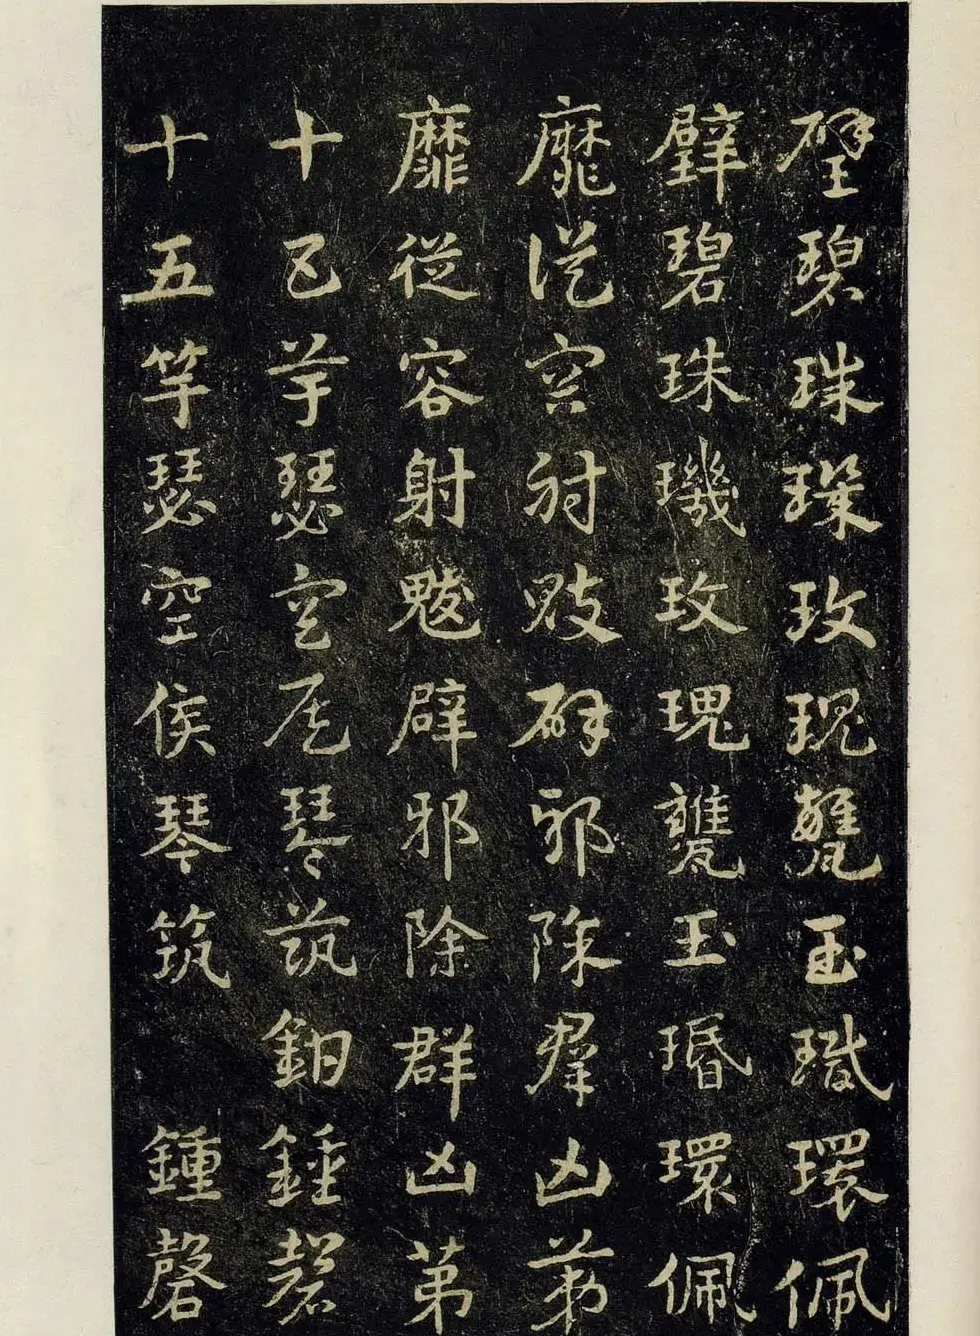 璧碧珠璣玫瑰甕玉環佩
璧碧珠璣玫瑰甕玉環佩
靡從容射魃辟邪除群凶第
靡從容射魃辟邪除群凶第
十五竽瑟空侯琴筑鍾磬
十五竽瑟空侯琴筑鍾磬